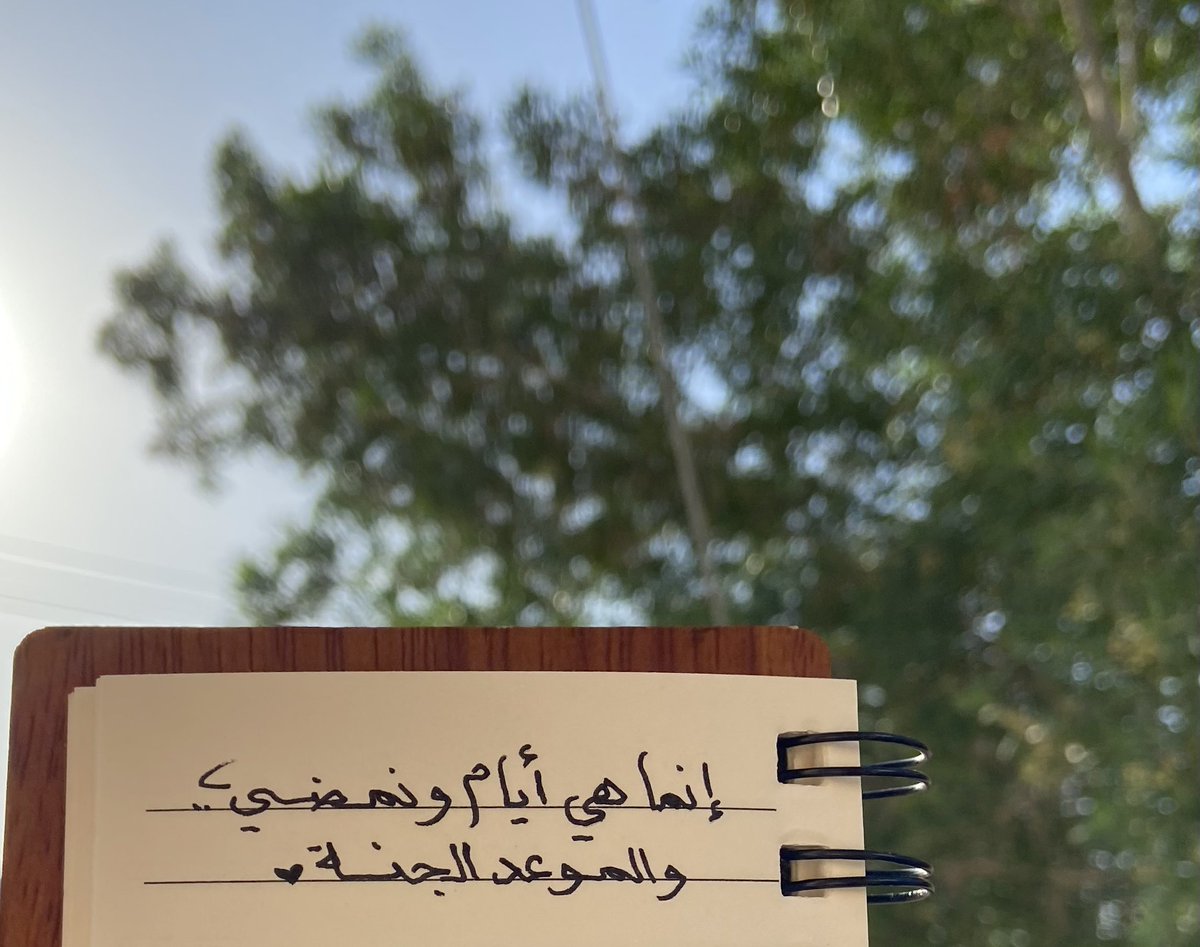 إنما هي أيام ونمضي؟..
والموعد الجنة♥